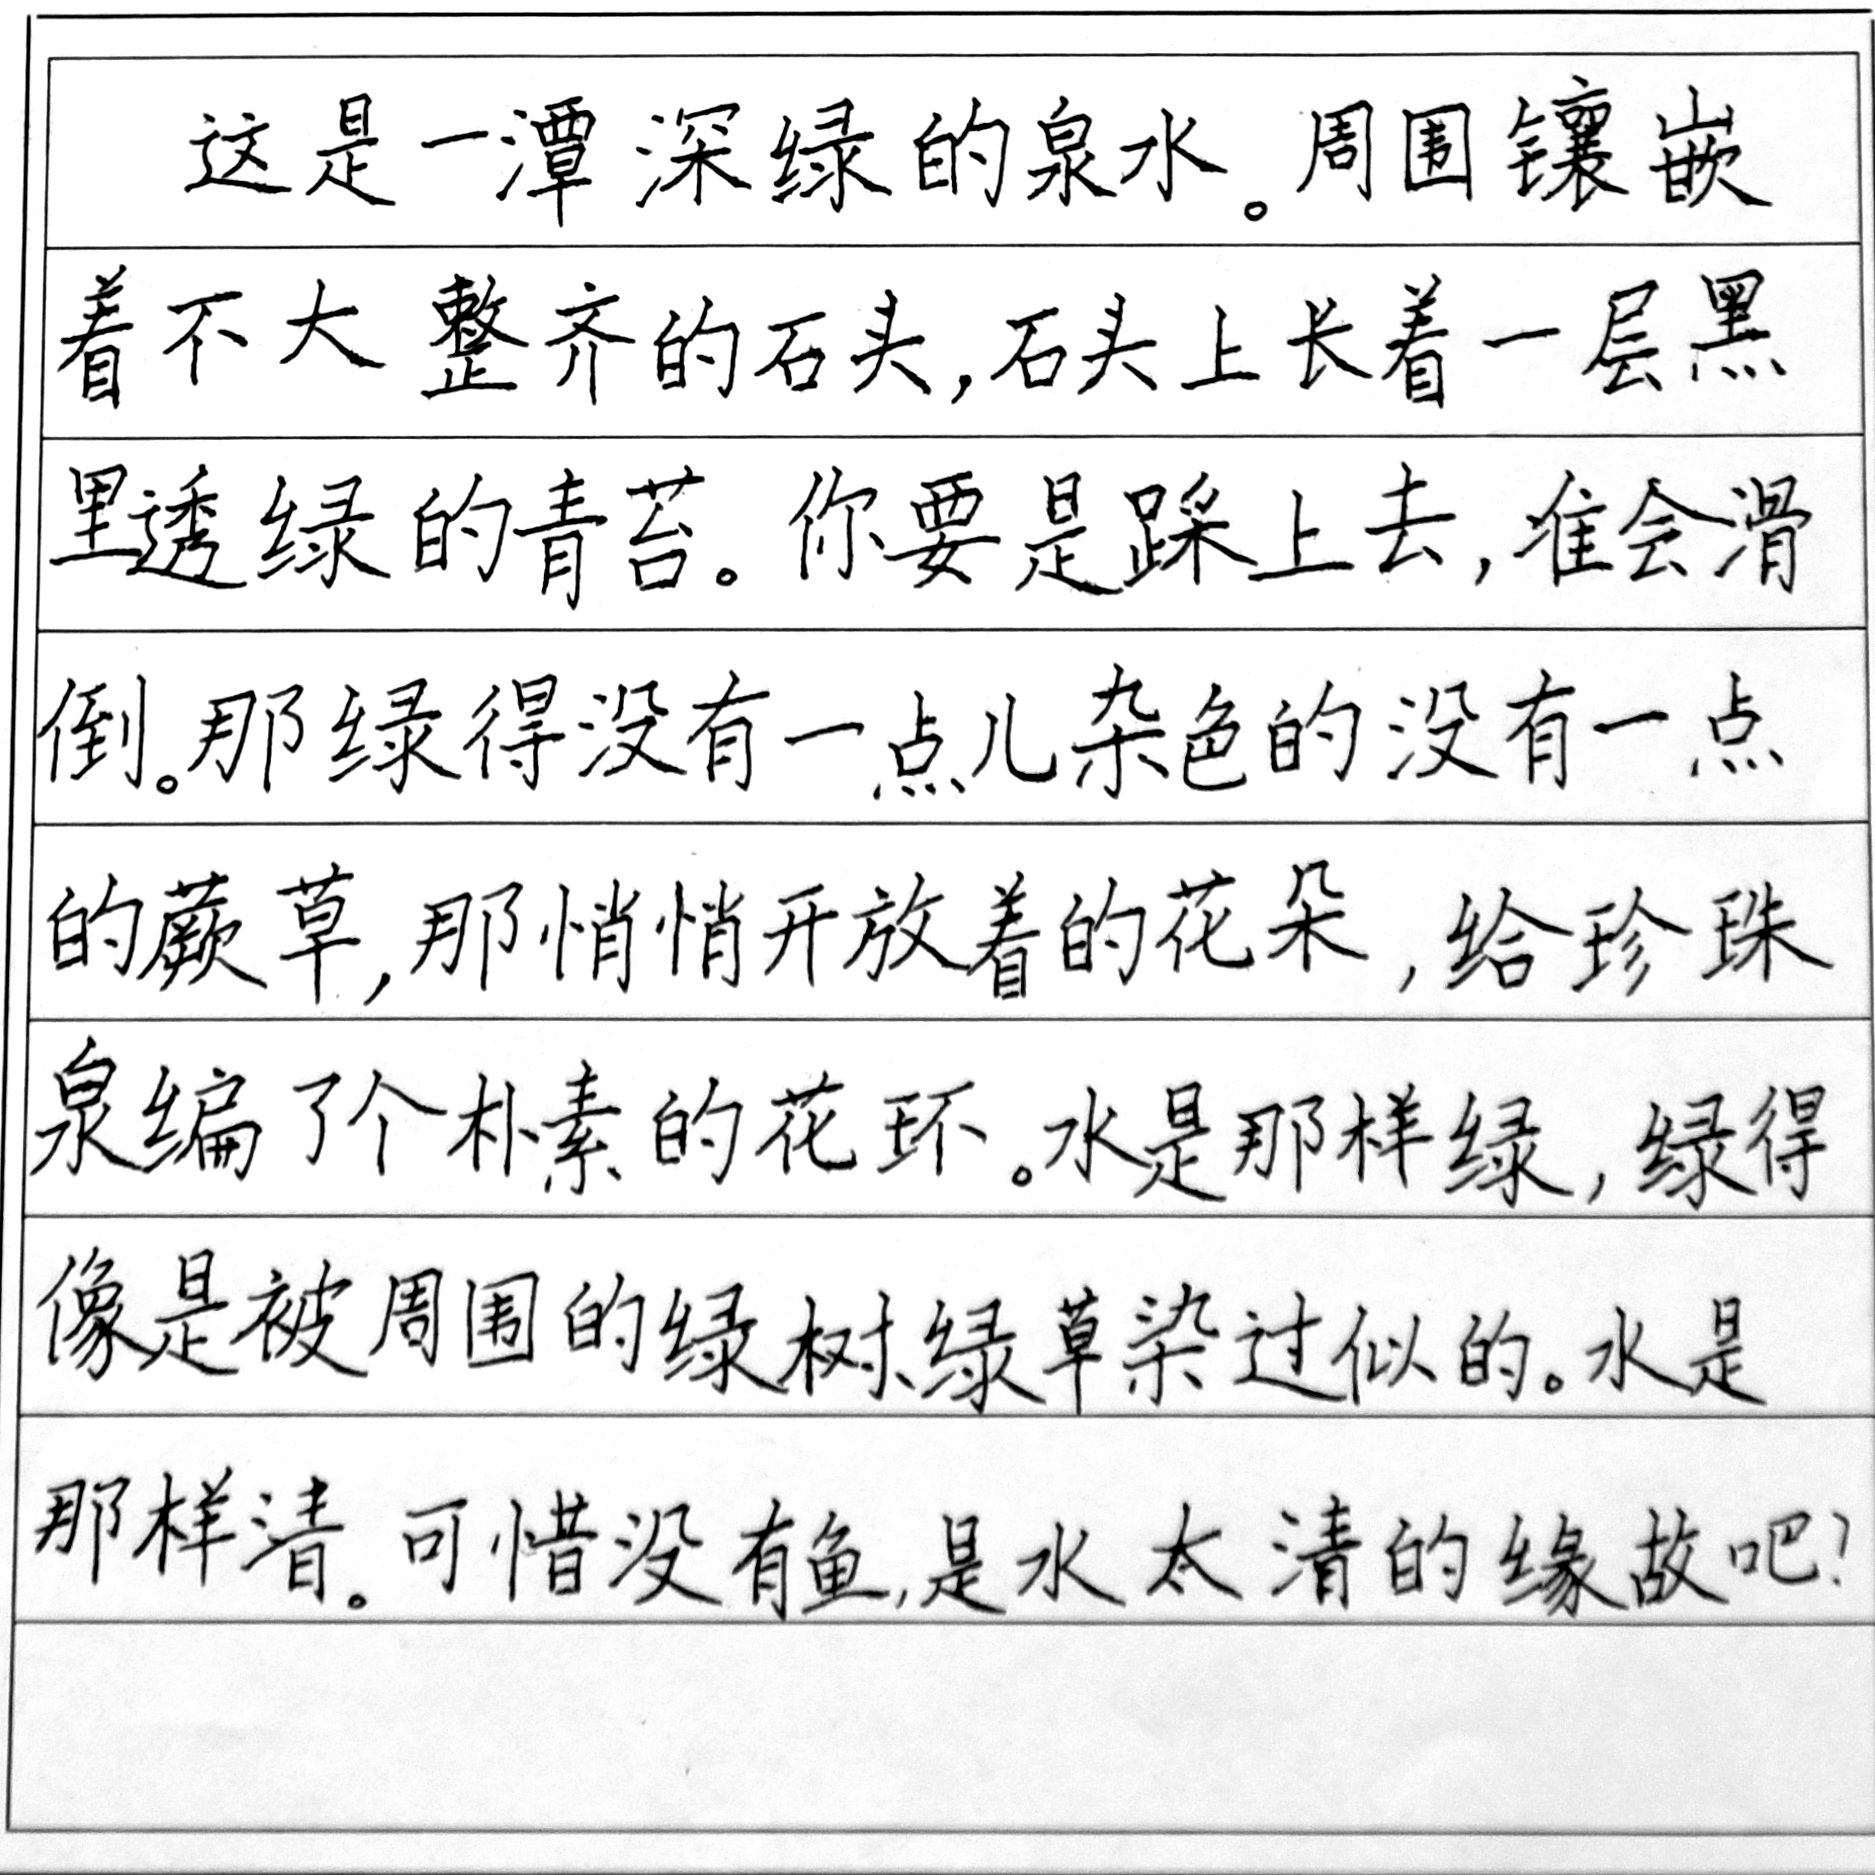 这是一潭深绿的泉水。周围镶嵌
着不大整齐的石头,石头上长着一层黑
里透绿的青苔。你要是踩上去,准会滑
倒。那绿得没有一点儿杂色的没有一点
的蕨草,那悄悄开放着的花朵,给珍珠
泉编了个朴素的花环。水是那样绿,绿得
像是被周围的绿树、绿草染过似的。水是
那样清。可惜没有鱼,是水太清的缘故吧?